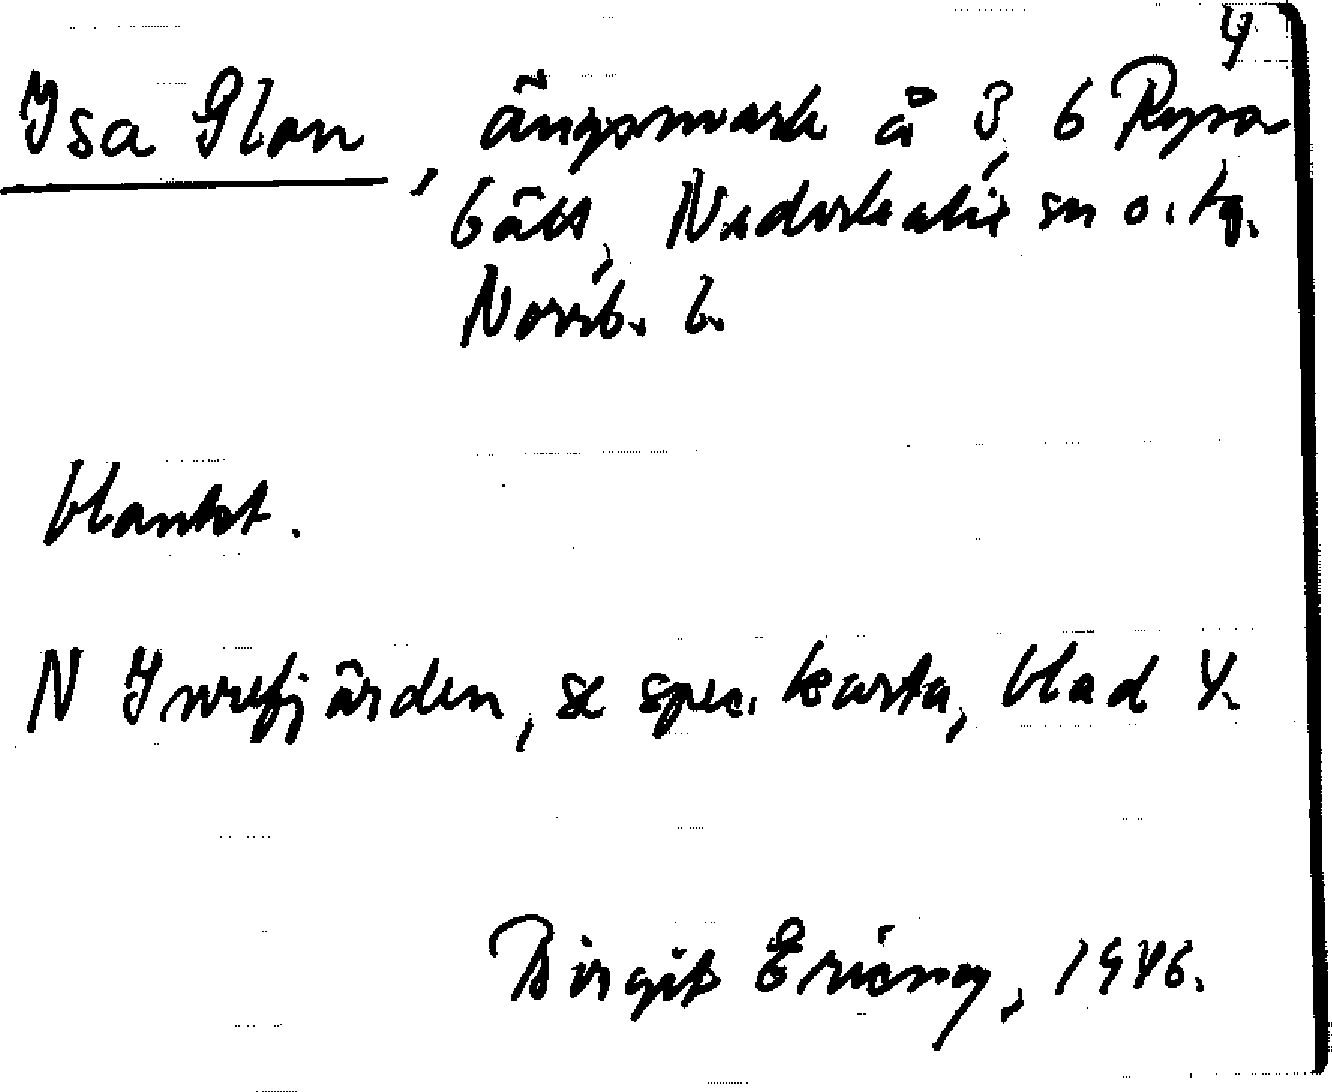 4
Isa Slon, ängsmark å B 6 Ryssa
bält, Nederkalix sn o. tg.
Norrb. l.
blankt.
N Inrefjärden, se spec. karta, blad 4.
Birgit Ericny, 1946.